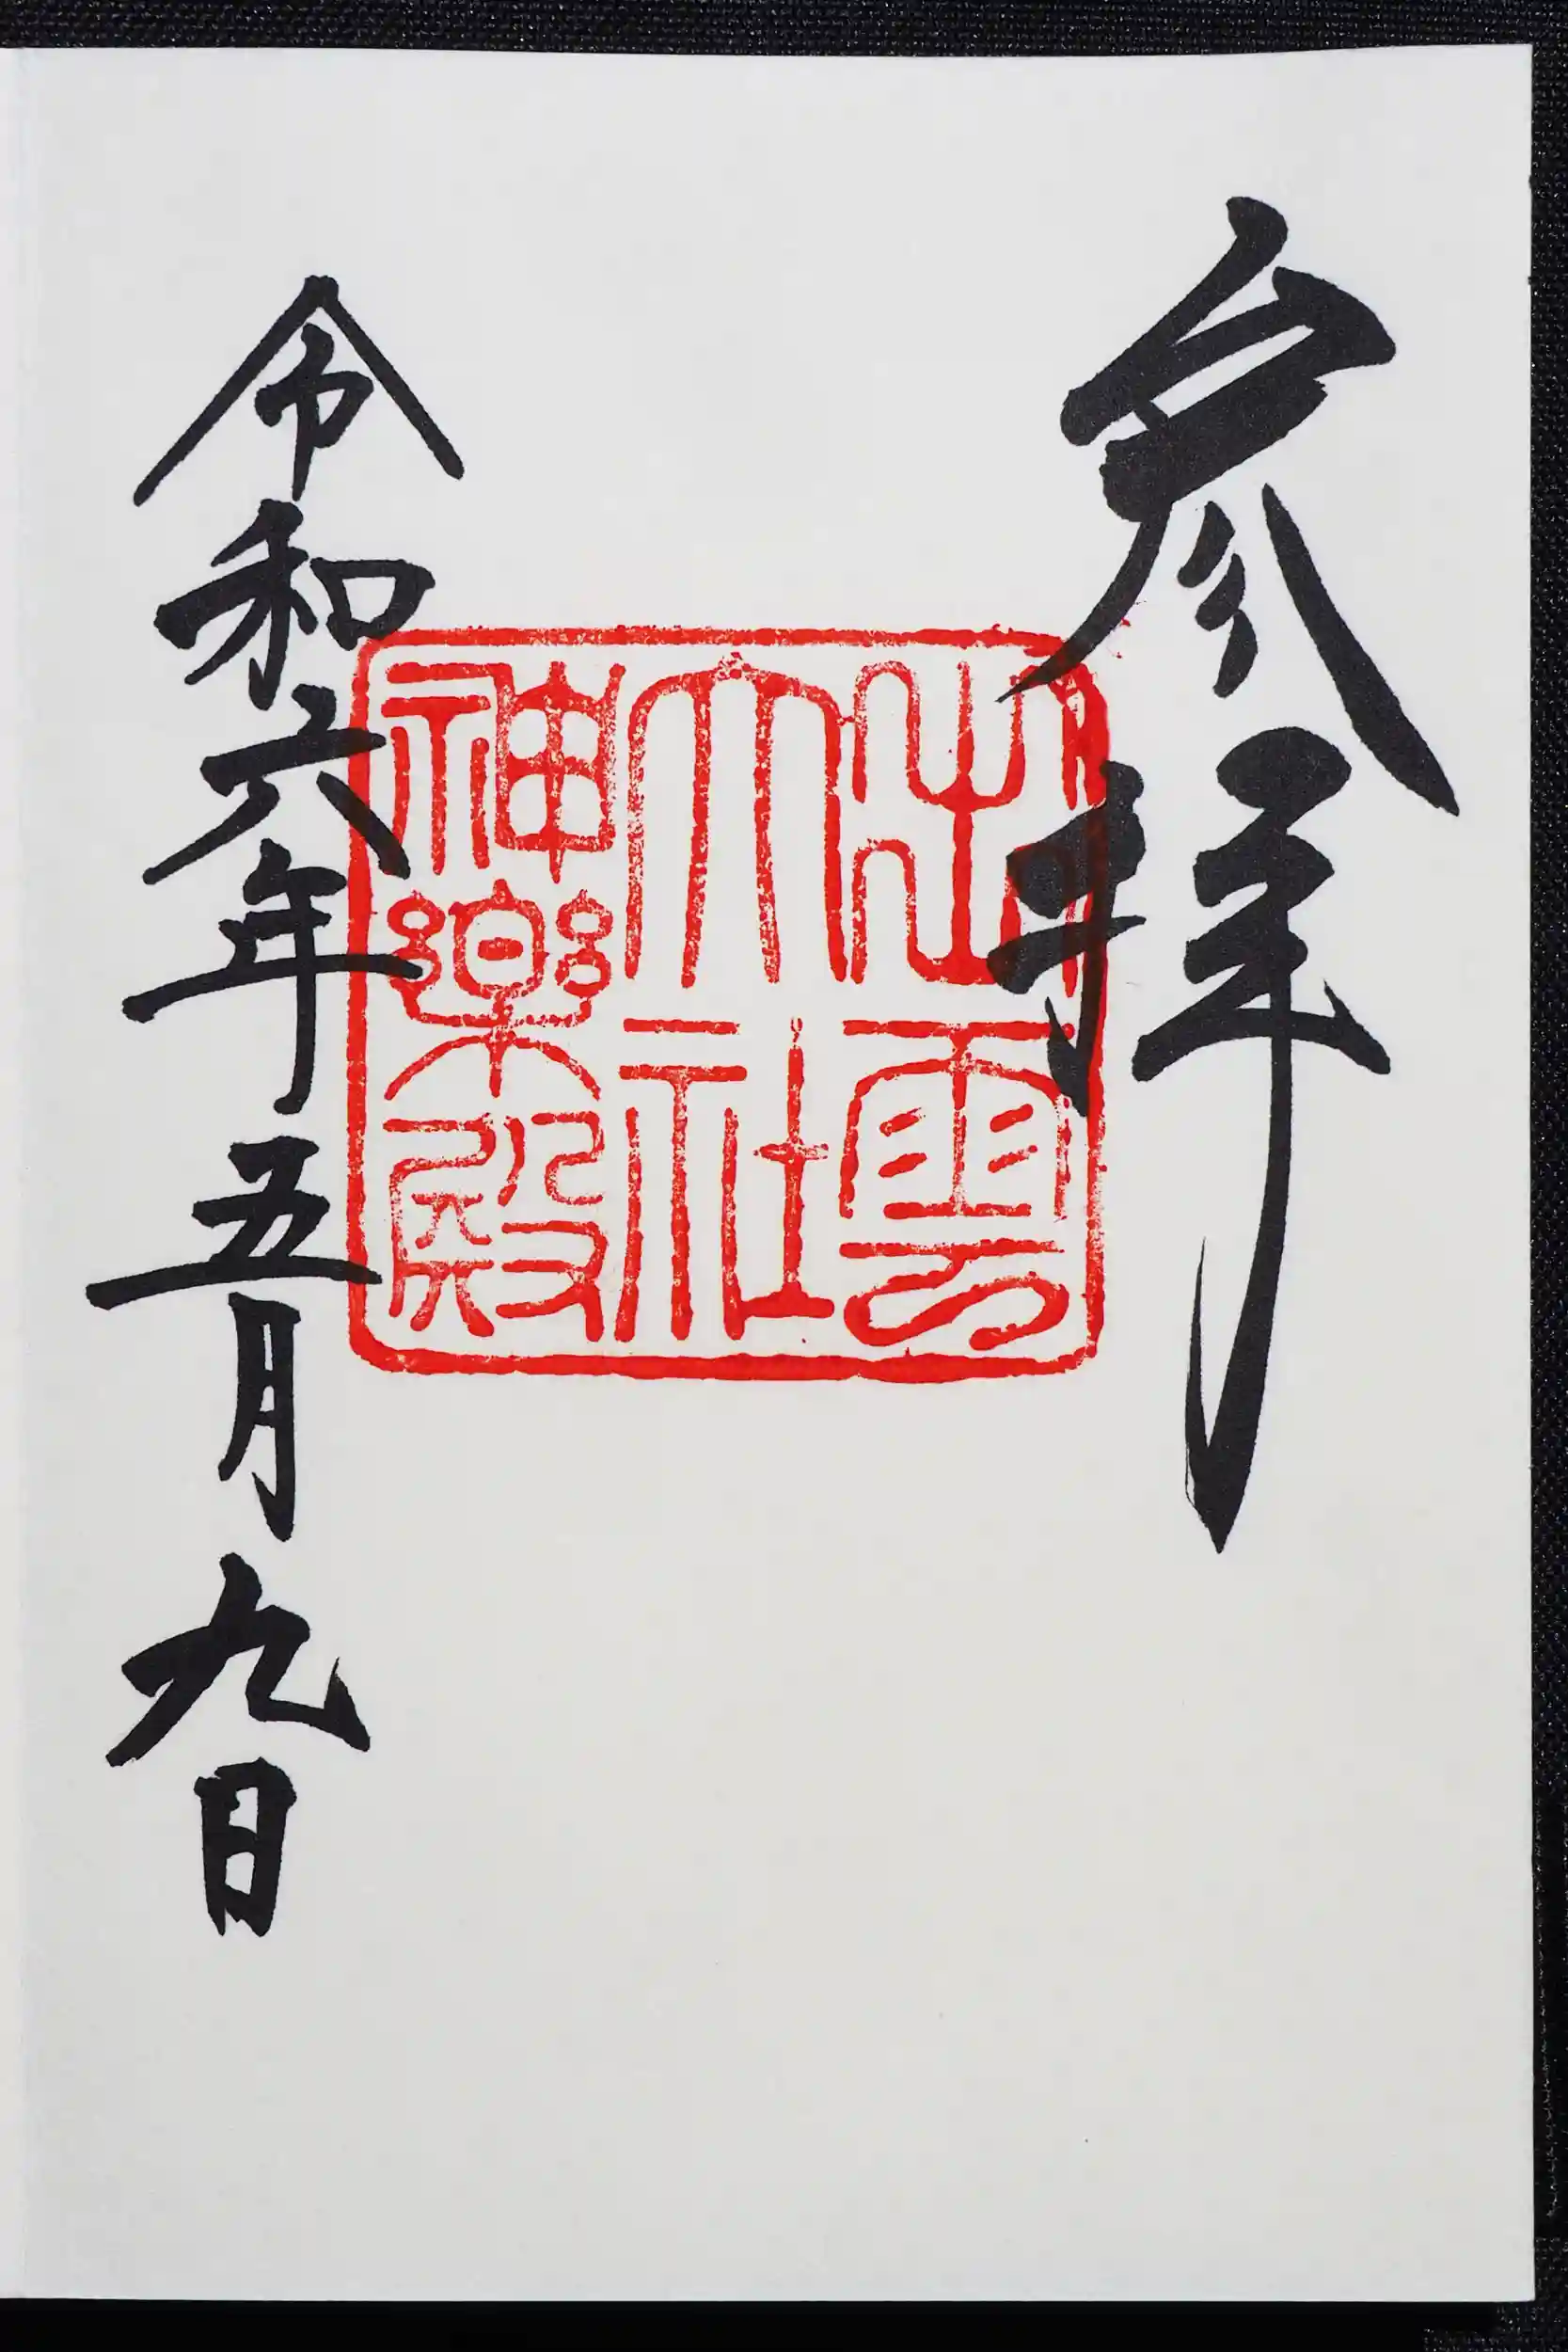 参拝
出雲
大社
神楽殿
令和六年五月九日